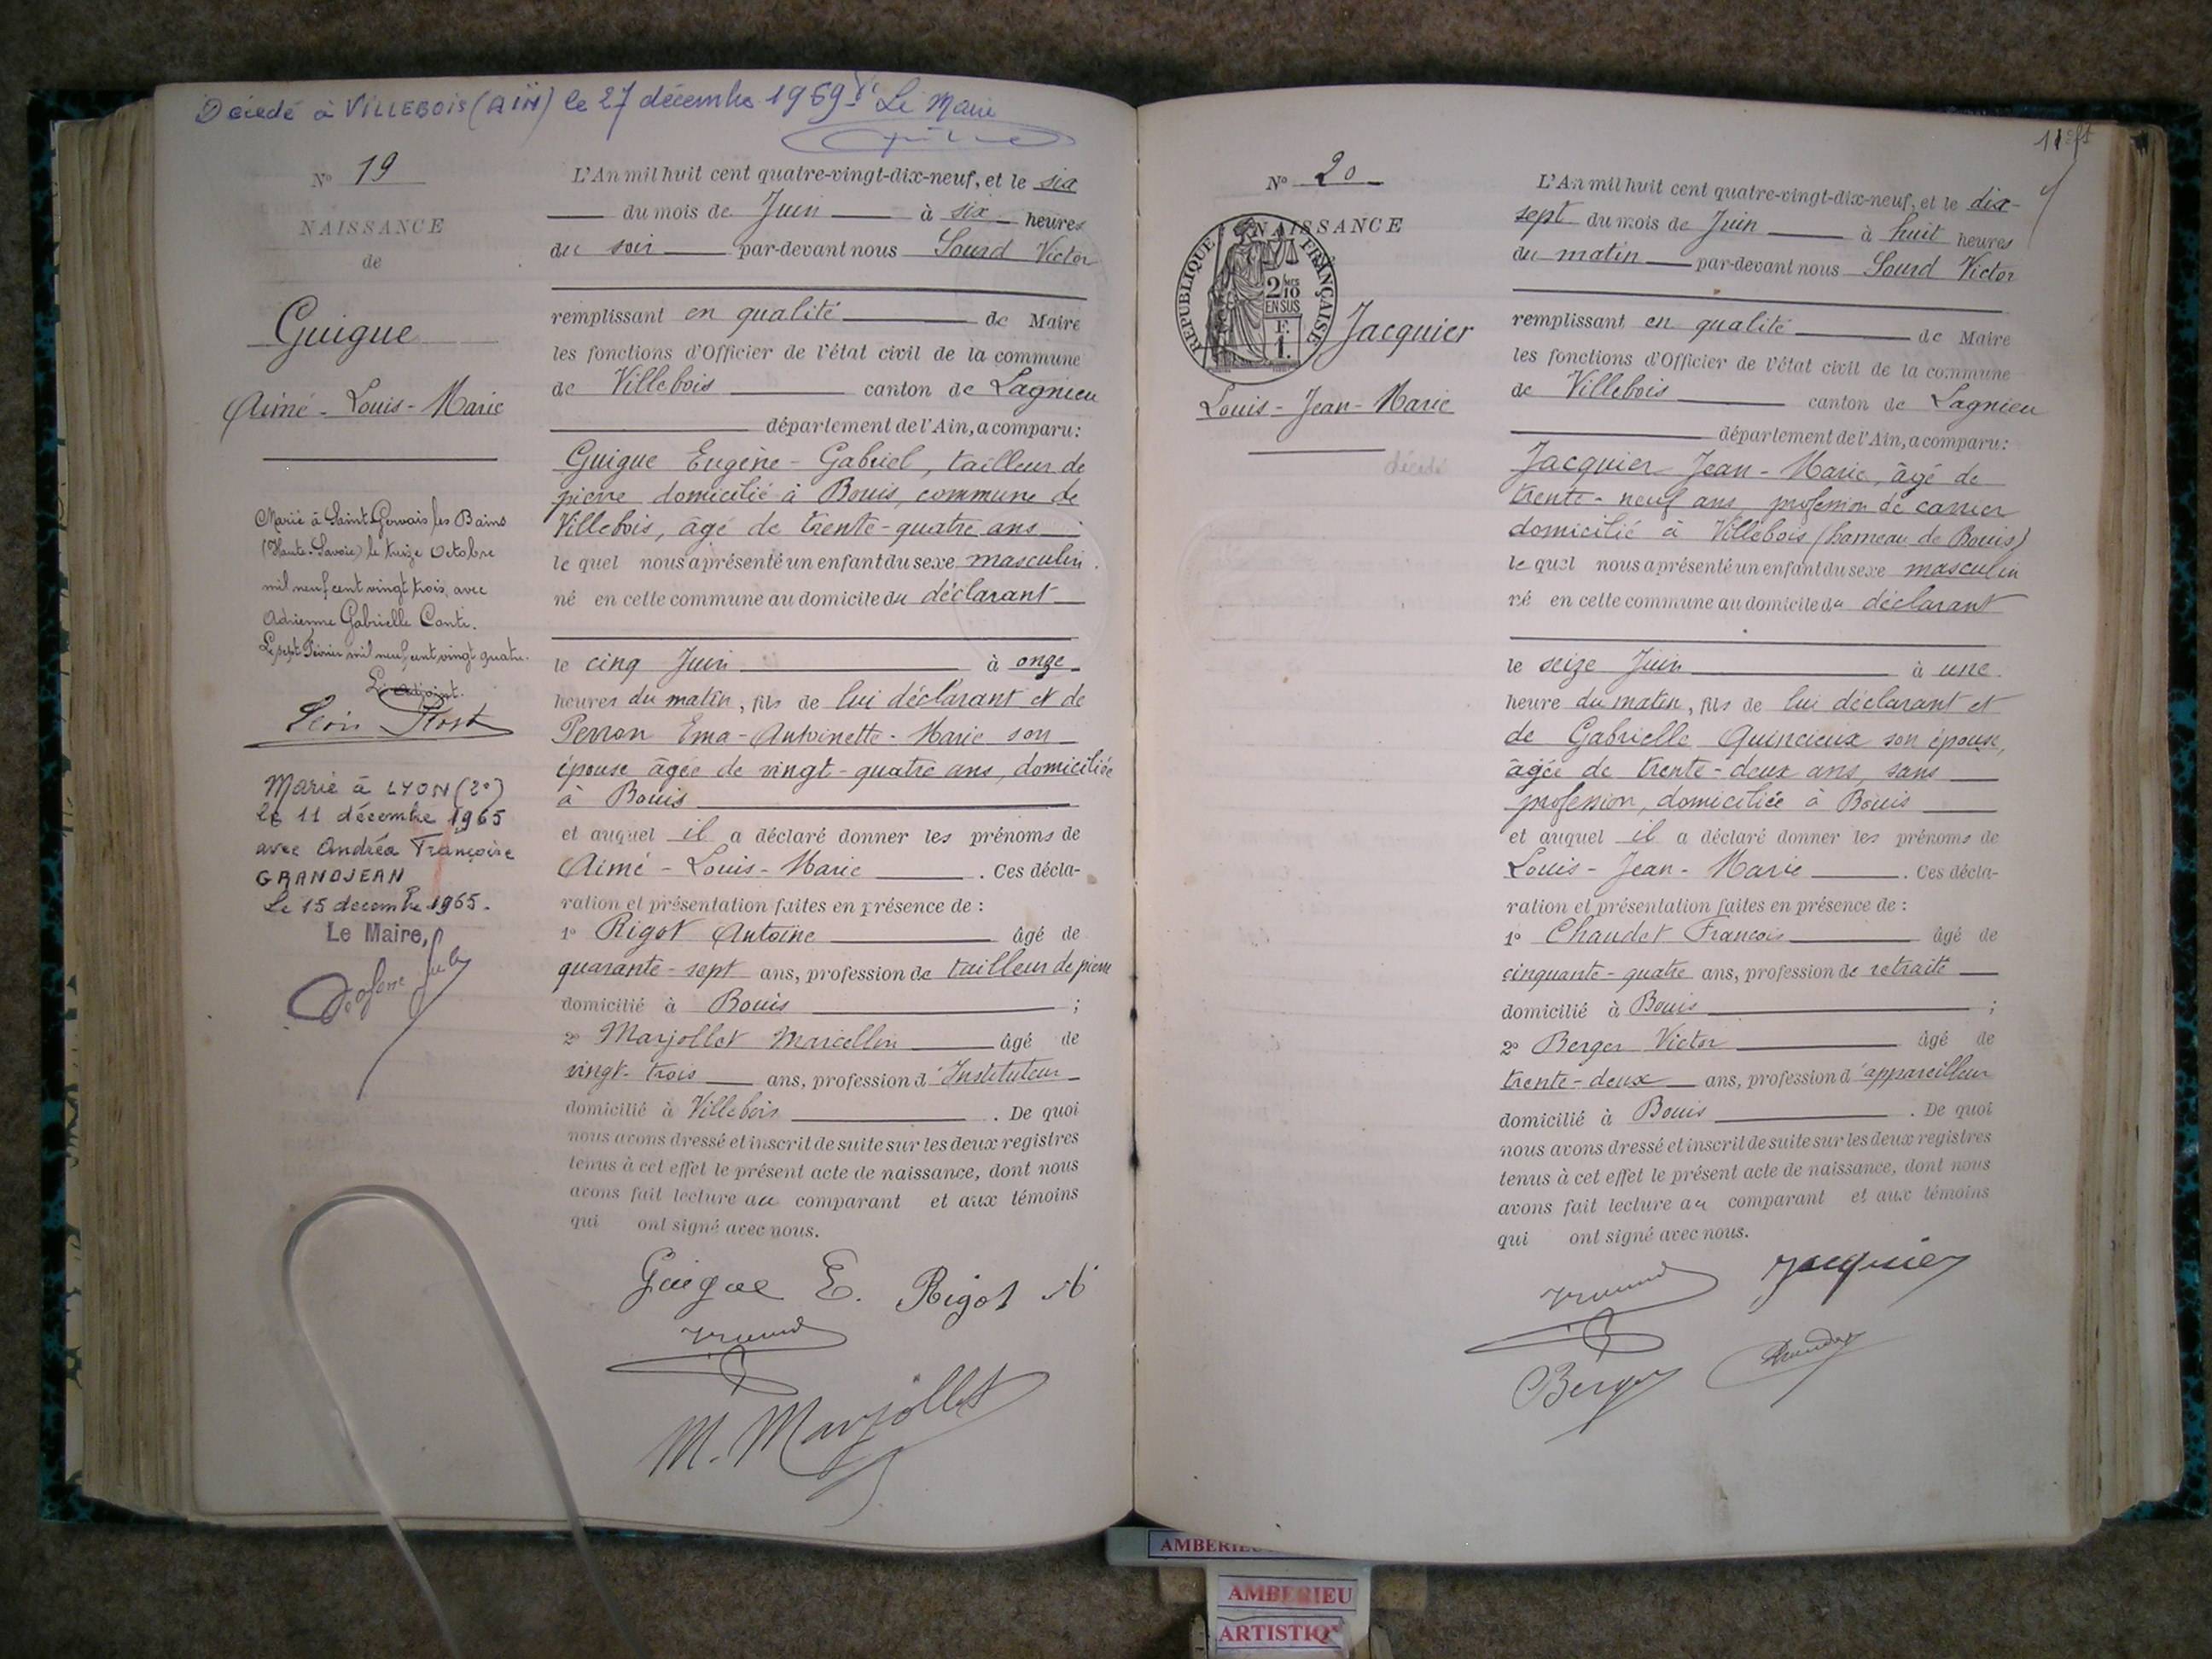 Décédé à VILLEBOIS (AIN) le 27 décembre 1969 Le Maire
N° 19
NAISSANCE
de
Guigue
Aimé - Louis - Marie
Marié à Saint-Gervais les Bains
(Haute-Savoie) le treize Octobre
mil neuf cent vingt trois, avec
Adrienne Gabrielle Conti.
Le sept Février mil neuf cent vingt quatre.
Le Adjoint.
Léon Prost
Marié à LYON (2°)
le 11 décembre 1965
avec Andréa Françoise
GRANDJEAN
Le 15 decembre 1965.
Le Maire,
L'An mil huit cent quatre-vingt-dix-neuf, et le six
du mois de Juin à six heures
du soir par-devant nous Sourd Victor
remplissant en qualité de Maire
les fonctions d'Officier de l'état civil de la commune
de Villebois canton de Lagnieu
département de l'Ain, a comparu:
Guigue Eugène - Gabriel, tailleur de
pierre domicilié à Bouis, commune de
Villebois, âgé de trente-quatre ans
le quel nous a présenté un enfant du sexe masculin
né en cette commune au domicile du déclarant
le cinq Juin à onze
heures du matin, fils de lui déclarant et de
Perron Ema - Antoinette - Marie son
épouse âgée de vingt-quatre ans, domiciliée
à Bouis
et auquel il a déclaré donner les prénoms de
Aimé - Louis - Marie . Ces décla-
ration et présentation faites en présence de :
1° Rigot Antoine âgé de
quarante-sept ans, profession de tailleur de pierre
domicilié à Bouis ;
2° Marjollet Marcellin âgé de
vingt-trois ans, profession d'Instituteur
domicilié à Villebois . De quoi
nous avons dressé et inscrit de suite sur les deux registres
tenus à cet effet le présent acte de naissance, dont nous
avons fait lecture au comparant et aux témoins
qui ont signé avec nous.
Guigue E. Rigot A
M. Marjollet
N° 20
NAISSANCE
REPUBLIQUE FRANÇAISE
2 MES
10
EN SUS
F.
1.
Jacquier
Louis - Jean - Marie
décédé
L'An mil huit cent quatre-vingt-dix-neuf, et le dix-
sept du mois de Juin à huit heures
du matin par-devant nous Sourd Victor
remplissant en qualité de Maire
les fonctions d'Officier de l'état civil de la commune
de Villebois canton de Lagnieu
département de l'Ain, a comparu:
Jacquier Jean - Marie, âgé de
trente-neuf ans profession de carrier
domicilié à Villebois (hameau de Bouis)
le quel nous a présenté un enfant du sexe masculin
né en cette commune au domicile du déclarant
le seize Juin à une
heure du matin, fils de lui déclarant et
de Gabrielle Quincieux son épouse,
âgée de trente-deux ans, sans
profession, domiciliée à Bouis
et auquel il a déclaré donner les prénoms de
Louis - Jean - Marie . Ces décla-
ration et présentation faites en présence de :
1° Chaudet François âgé de
cinquante-quatre ans, profession de retraité
domicilié à Bouis ;
2° Berger Victor âgé de
trente-deux ans, profession d'appareilleur
domicilié à Bouis . De quoi
nous avons dressé et inscrit de suite sur les deux registres
tenus à cet effet le présent acte de naissance, dont nous
avons fait lecture au comparant et aux témoins
qui ont signé avec nous.
Jacquier
Berger
AMBERIEU
ARTISTIQ